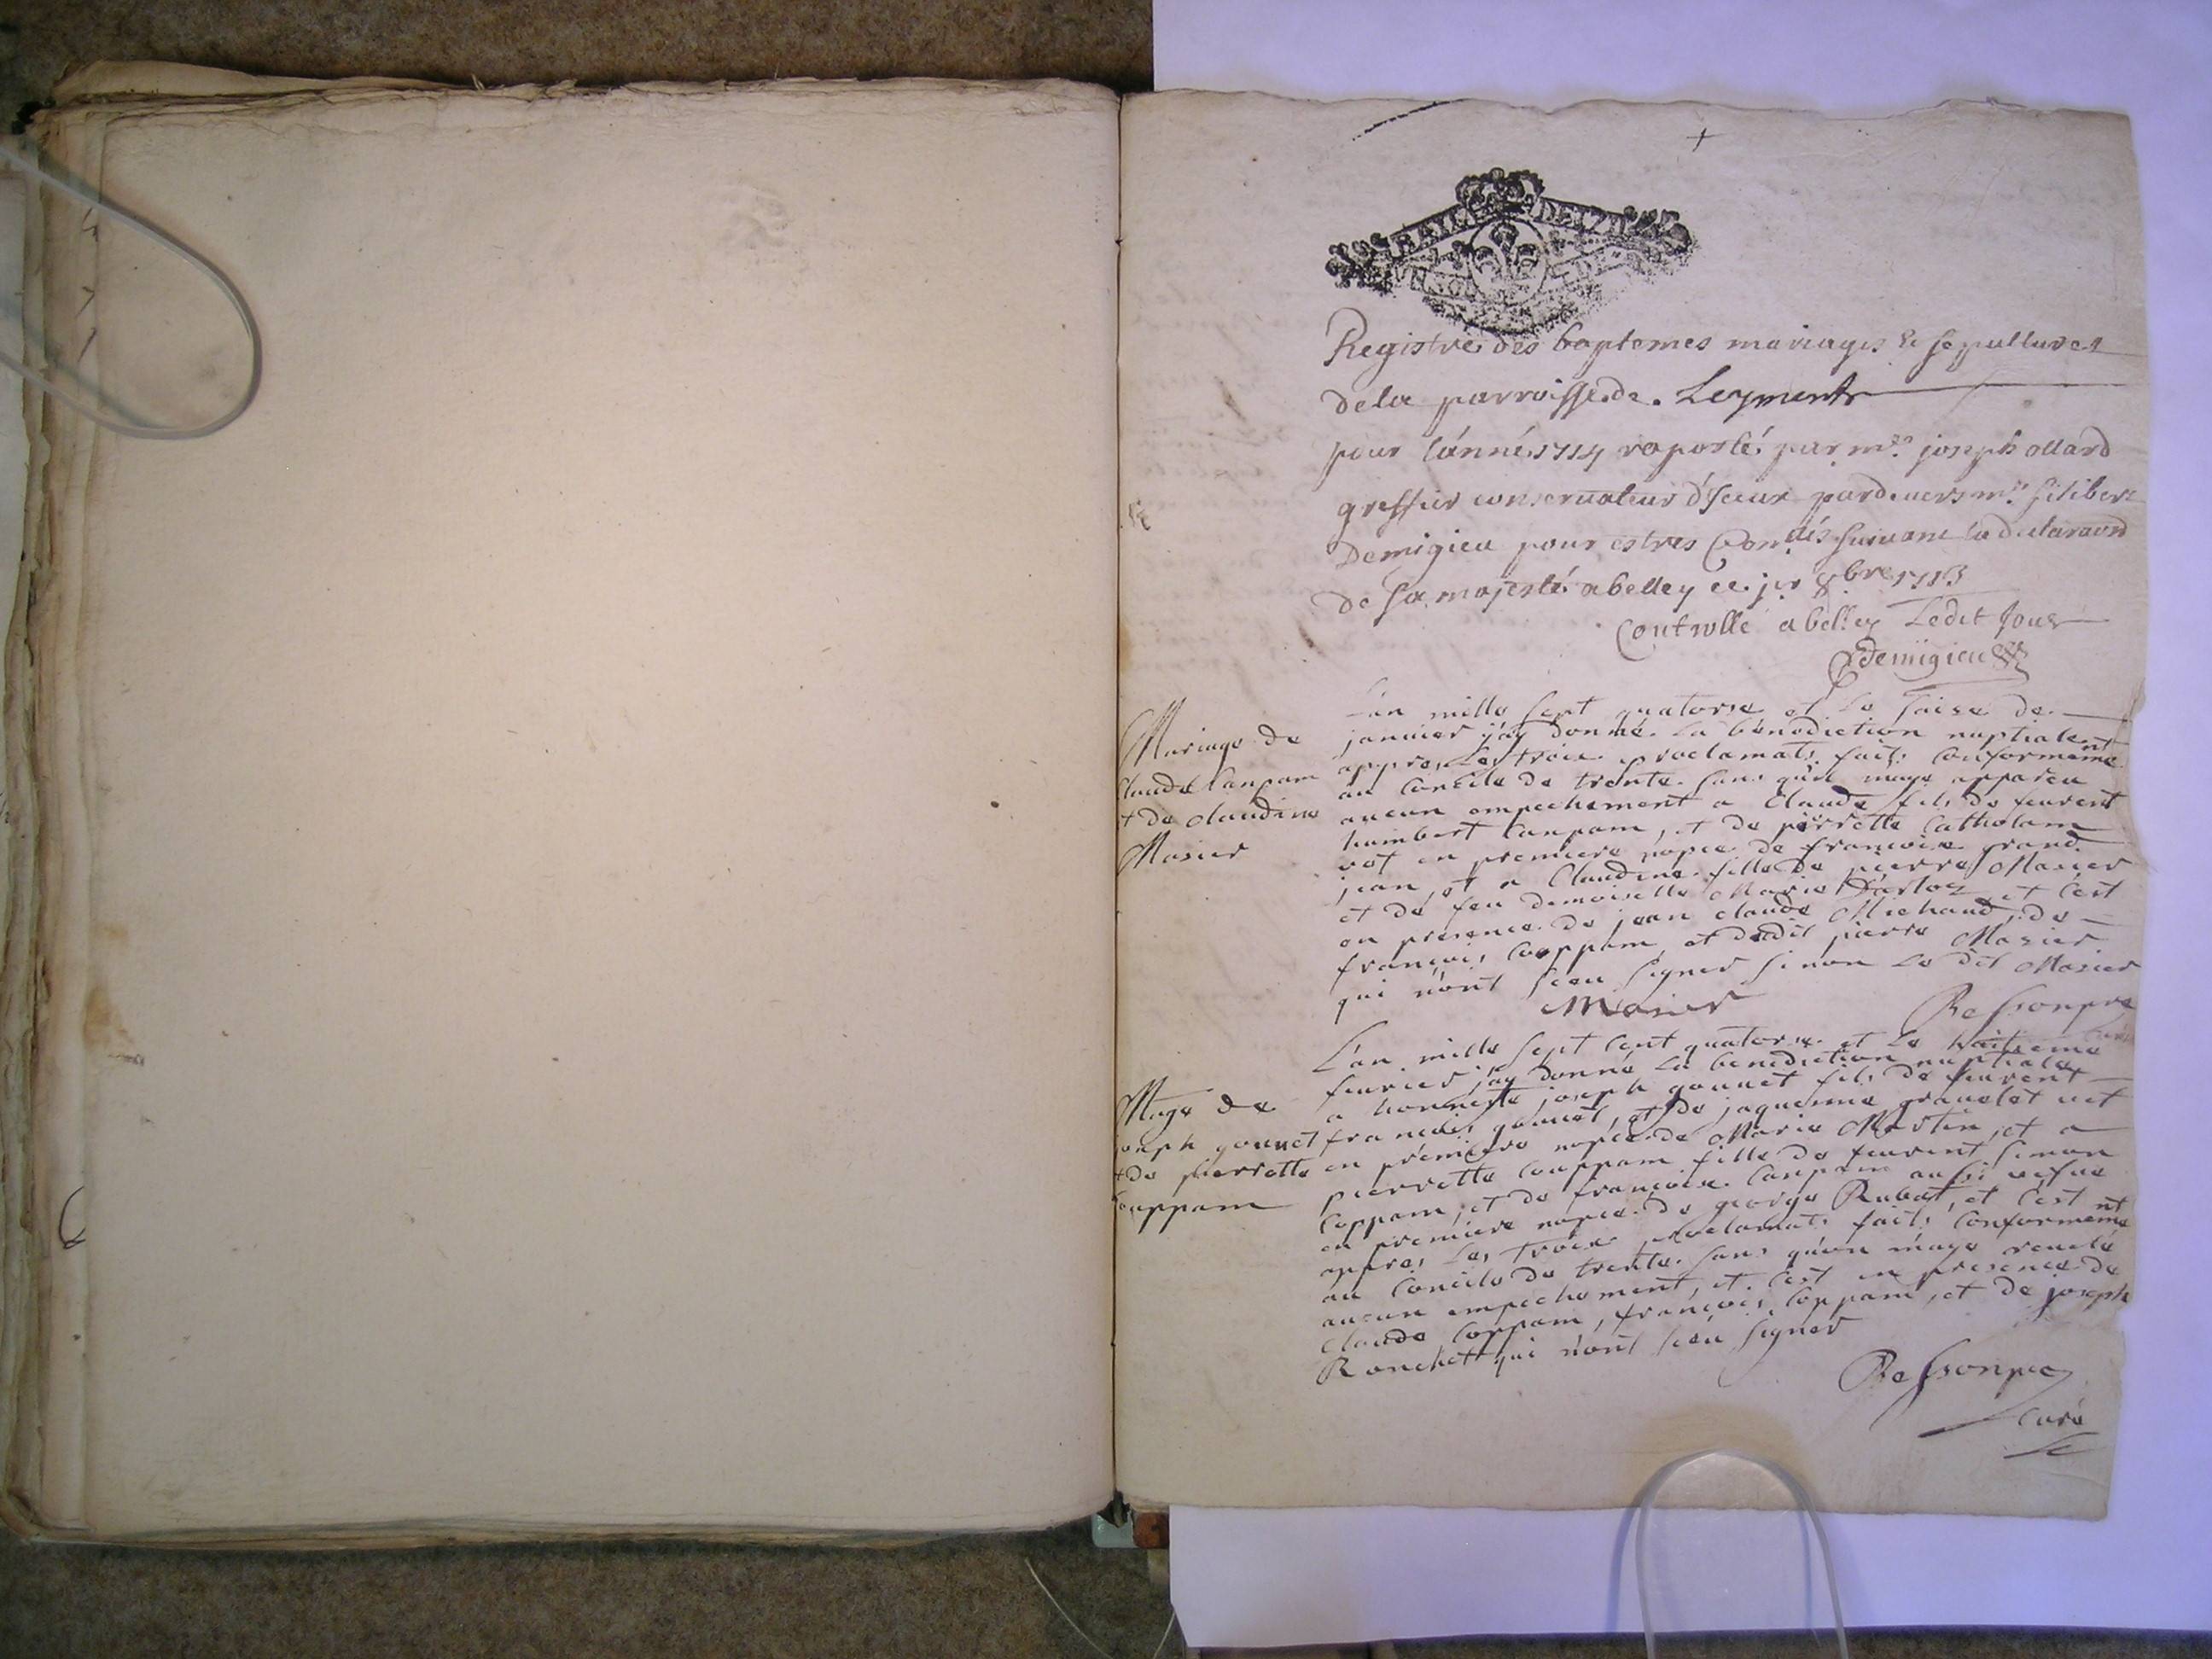 Registre des baptemes mariages & sepultures
de la parroisse de Leyment
pour l'année 1714 raporté par mre joseph ollard
greffier conservateur d'iceux pardevers mre filibert
Demigieu pour estres suivant la declaraon
de sa majesté a belley ce jer 8bre 1713
Controllé a belley Ledit Jour
Demigieu
Mariage de
Claude Caupam
et de claudine
Masier
L'an mille sept quatorse et le saise de
janvier j'ay donné la bénédiction nuptiale
appres les trois proclamats faits conformemt
au concile de trente sans qu'il m'aye appareu
aucun empechement a Claude fils de feurent
humbert Caupam, et de pierrette
vef en premiere nopce de françoise grand
jean, et a Claudine fille de pierre Masier
et de feu demoiselle Marie et c'est
en presence de jean claude Michaud, de
françois Coppam et dudit pierre Masier
qui n'ont sceu signer sinon le dit Masier
Masier
curé
Mage de
joseph gonnet
et de pierrette
Couppam
L'an mille sept cent quatorse et le huitieme
fevrier j'ay donné la benediction nuptiale
a honneste joseph gonnet fils de feurent
francois gonnet, et de jaquemine gravelot vef
en premiere nopce de Marie Martin, et a
pierrette Couppam fille de feurent simon
Coppam, et de françoise Caupam aussi vefue
en premiere nopce de george Rubat, et c'est
appres les trois proclamats faits conformemt
au Concile de trente sans qu'on m'aye revelé
aucun empechement, et c'est en presence de
Claude Coppam, françois Coppam, et de joseph
Ronchet qui n'ont sceu signer
curé